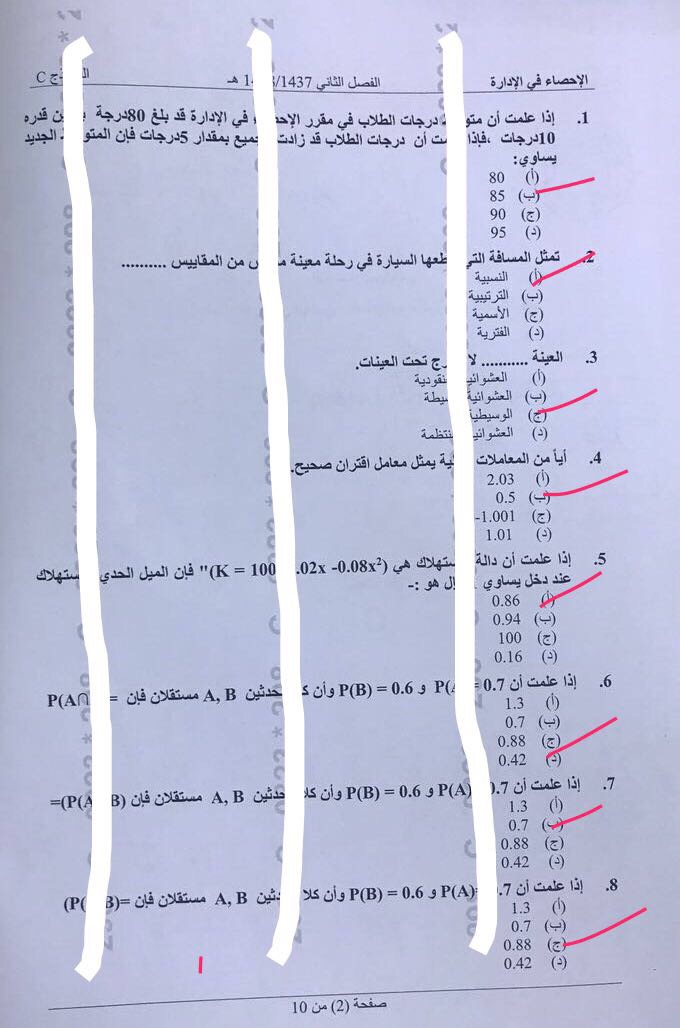 الإحصاء في الإدارة الفصل الثاني 1437/ هـ C
1. إذا علمت أن درجات الطلاب في مقرر في الإدارة قد بلغ 80درجة قدره
10درجات ،فإذا أن درجات الطلاب قد زادت بمقدار 5درجات فإن الجديد
يساوي:
(أ) 80
(ب) 85
(ج) 90
(د) 95
2. تمثل المسافة السيارة في رحلة معينة من المقاييس ..........
(أ) النسبية
(ب) الترتيبية
(ج) الأسمية
(د) الفترية
3. العينة ........... تحت العينات.
(أ)
(ب)
(ج) الوسيطية
(د)
4. أياً من المعاملات يمثل معامل اقتران صحيح.
(أ) 2.03
(ب) 0.5
(ج) 1.001-
(د) 1.01
5. إذا علمت أن دالة هي (K = 100 .02x -0.08x²)" فإن الميل الحدي
عند دخل يساوي هو :-
(أ) 0.86
(ب) 0.94
(ج) 100
(د) 0.16
6. إذا علمت أن 0.7 و P(B) = 0.6 وأن A, B مستقلان فإن
(أ) 1.3
(ب) 0.7
(ج) 0.88
(د) 0.42
7. إذا علمت أن P(A) و P(B) = 0.6 وأن A, B مستقلان فإن
(أ) 1.3
(ب) 0.7
(ج) 0.88
(د) 0.42
8. إذا علمت أن P(A)= و P(B) = 0.6 وأن A, B مستقلان فإن
(أ) 1.3
(ب) 0.7
(ج) 0.88
(د) 0.42
صفحة (2) من 10